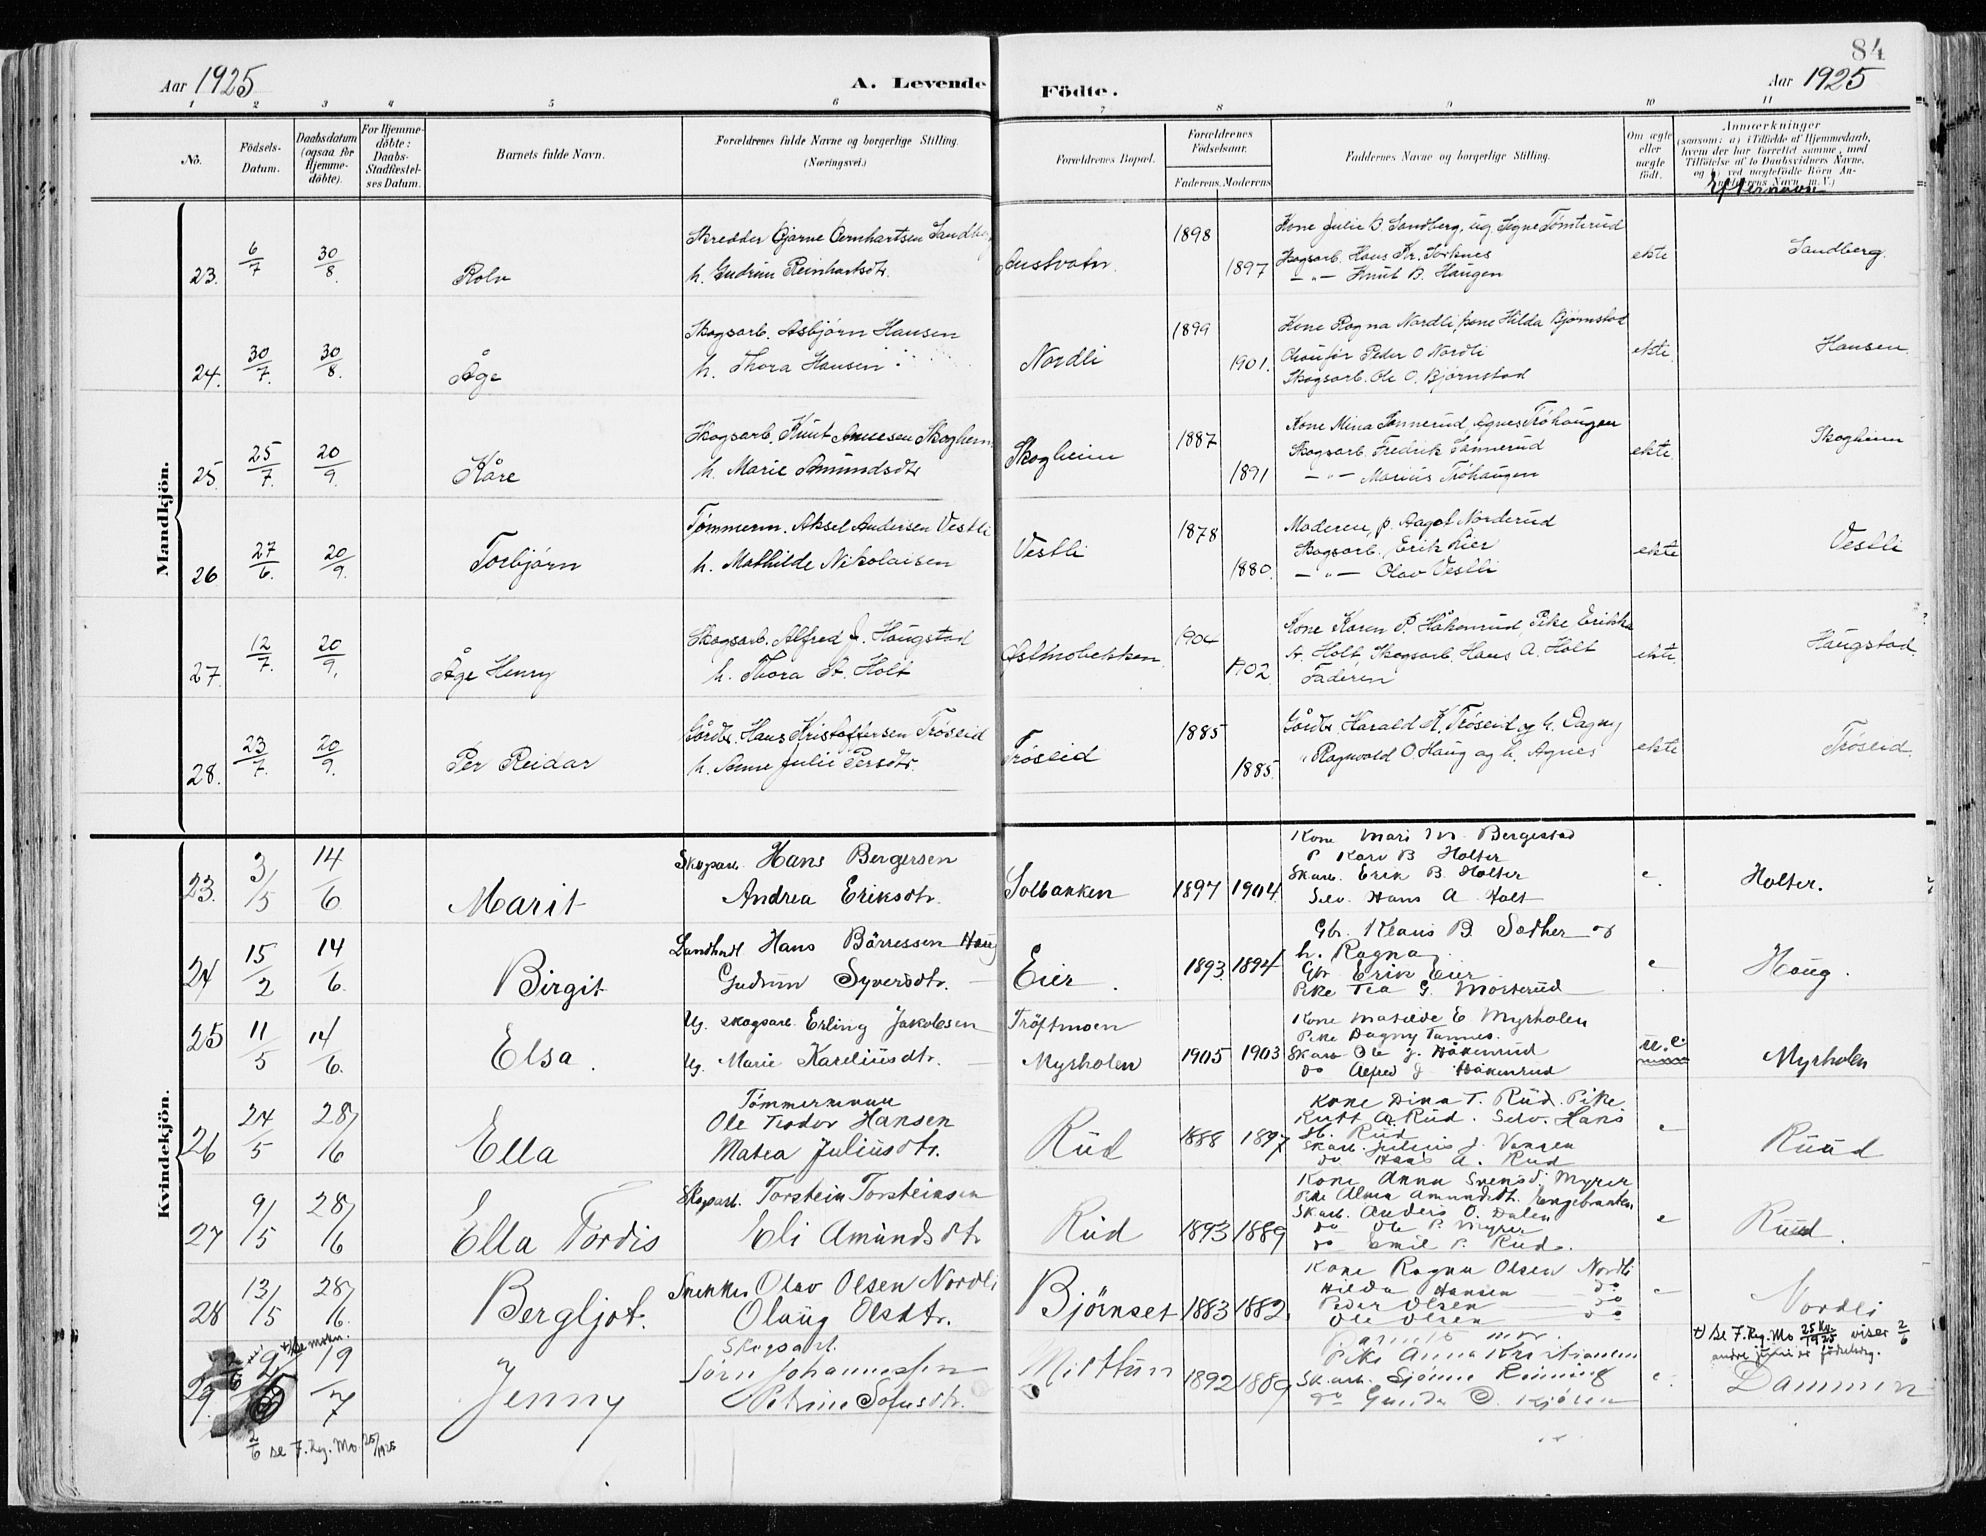 84
Aar 1925
A. Levende
Födte.
Aar 1925
1 2 3 4 5 6 7 8 9 10 11
No.
Födsels-
Datum.
Daabsdatum
(ogsaa for
Hjemme-
döbte).
For Hjemme-
döbte:
Daabs-
Stadfæstel-
ses Datum.
Barnets fulde Navn.
Forældrenes fulde Navne og borgerlige Stilling.
(Næringsvei.)
Forældrenes Bopæl.
Forældrenes
Födselsaar.
Faderens. Moderens.
Faddernes Navne og borgerlige Stilling.
Om ægte
eller
uægte
födt.
Anmærkninger
(saasom: a) i Tilfælde af Hjemmedaab,
hvem der har forrettet samme, med
Tilföielse af to Daabsvidners Navne,
og b) ved uægtefödte Börn An-
m. V.)
Efternavn
Mandkjön.
23. 6/7 30/8 Rolv
Skredder Bjarne Bernhartsen Sandberg
h. Gudrun Reinhartsdtr.
Austvatn. 1898 1897
Kone Julie B. Sandberg, ug. Signe Tömterud
Skogsarb. Hans Kr. Torknes
— " — Knut B. Haugen
ekte Sandberg.
24. 30/7. 30/8. Åge
Skogsarb. Asbjörn Hansen
h. Thora Hansen
Nordli 1899 1901.
Kone Ragna Nordli, kone Hilda Bjørnstad
Chauför Peder O Nordli
Skogsarb. Ole O. Bjørnstad
ekte Hansen.
25. 25/7. 20/9. Kåre
Skogsarb. Knut Skogheim
h. Marie Amundsdtr
Skogheim 1887 1891
Kone Mina Sønnerud, Agnes Tröhaugen
Skogsarb. Fredrik Sønnerud
— " — Marius Tröhaugen
ekte. Skogheim
26 27/6. 20/9. Torbjörn
Tömmerm. Aksel Andersen Vestli
h. Mathilde Nikolaisen
Vestli 1878 1880.
Moderen, p. Aagot Norderud
Skogsarb. Erik Lier
— " — Olav Vestli
ekte Vestli
27. 12/7. 20/9. Åge Henry
Skogsarb. Alfred J. Haugstad
h. Thora A. Holt
Østmobekken. 1904 1902.
Kone Karen P. Håkenrud, Pike Erikka
A. Holt Skogsarb. Hans A. Holt
Faderen
ekte. Haugstad.
28. 23/7. 20/9. Per Reidar
Gårdbr. Hans Kristoffersen Tröseid
h. Anne Julie Persdtr.
Tröseid 1885 1885.
Gårdbr. Harald K. Tröseid og h. Dagny
" Ragnvald O Haug og h. Agnes
ekte Tröseid.
Kvindekjön.
23. 3/5 14/6 Marit
Skogsarb. Hans Bergersen
Andrea Eriksdtr.
Solbakken 1897 1904.
Kone Mari M. Bergestad
P. Kari B Holter
Skarb. Erik B. Holter
Selv. Hans A Holt
e. Holter.
24 15/2 14/6. Birgit
Landhndl. Hans Börressen Haug
Gudrun Syversdtr.
Eier. 1893. 1894
Gbr. Klaus B. Sæther og
h. Ragna
Gbr. Erik Eier
Pike Tea G. Morterud
e Haug.
25 11/5 14/6. Elsa.
Ug. skogsarb. Erling Jakobsen
Ug. Marie Kareliusdtr.
Tröftmoen
Myrholen 1905 1903
Kone Matilde E Myrholen
Pike Dagny Tannes.
Skarb. Ole J. Håkenrud
do Alfred J Håkenrud
u.e. Myrholen
26 24/5 28/6 Ella
Tömmermann
Ole Teodor Hansen
Matea Juliusdtr.
Rud 1888 1897
Kone Dina T. Rud. Pike
Rutt A. Rud. Selv. Hans
H. Rud
Skarb. Julius J. Vangen
do Hans A. Rud
e Ruud
27 9/5 28/6 Ella Tordis
Skogsarb. Torstein Torsteinsen
Eli Amundsdtr
Rud 1893 1889
Kone Anna Svensd. Myrer
Pike Alma Amundsdt. Engebraaten
Skarb. Anders O. Dalen
do Ole P. Myrer
do Emil P. Rud.
e Ruud.
28 13/5 28/6. Bergljot.
Snekker Olav Olsen Nordli
Olaug Olsdtr.
Bjørnset 1883 1882
Kone Ragna Olsen Nordli
Hilda Hansen — do
Peder Olsen — do
Ole Olsen do
e Nordli
29. 2/6 19/7 Jenny
Skogsarb.
Jörn Johannessen
Petrine Sofusdtr.
Midttun 1892 1889
Barnets mor.
Pike Anna Kristiansen
Skarb. Sjønne Rønning
do Gunder O. Kjösen
e. Dammen
x) Se F. Reg. No 25 Kv./1925 viser 2/6
andre juni er födselsdag.
2/6 se F. Reg. No. 25/1925